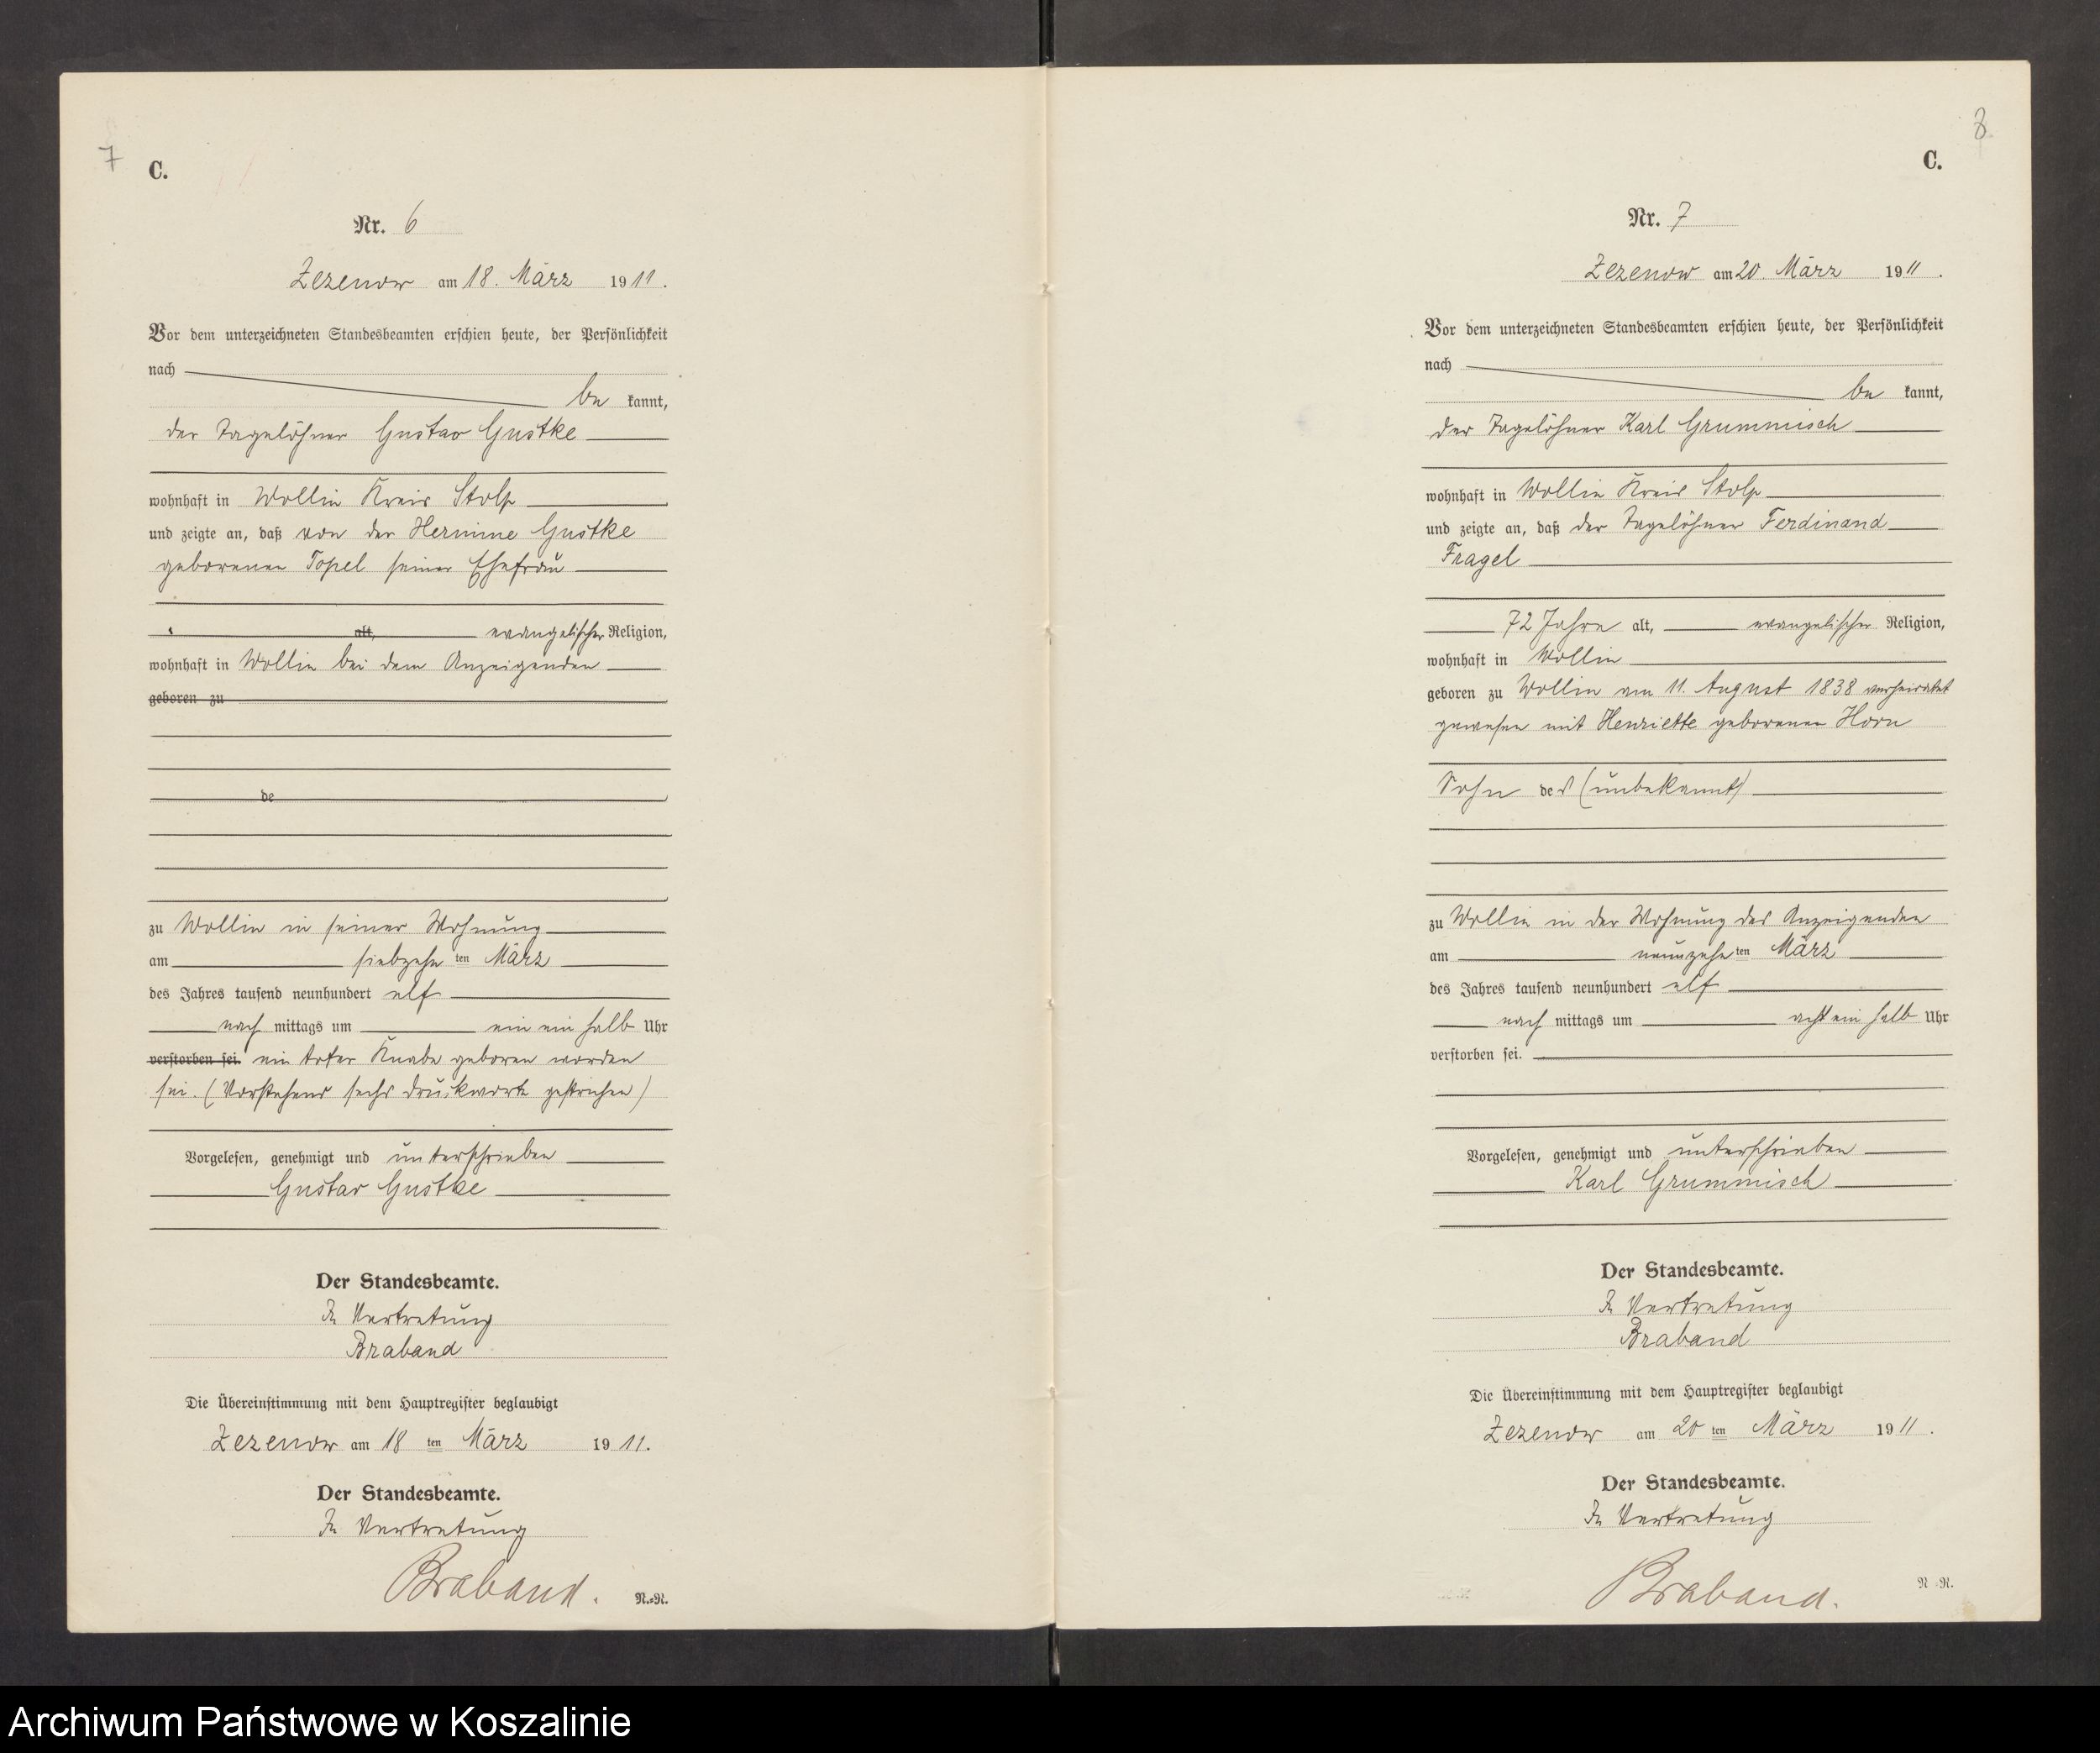 7
C.
Nr. 6
Zezenow am 18. März 1911.
Vor dem unterzeichneten Standesbeamten erschien heute, der Persönlichkeit
nach
be kannt,
der Tagelöhner Gustav Gustke
wohnhaft in Wollin Kreis Stolp
und zeigte an, daß von der Hermine Gustke
geborenen Topel seiner Ehefrau
alt, evangelischer Religion,
wohnhaft in Wollin bei dem Anzeigenden
geboren zu
de
zu Wollin in seiner Wohnung
am siebzehn ten März
des Jahres tausend neunhundert elf
nach mittags um ein ein halb Uhr
verstorben sei. ein toter Knabe geboren worden
sei. (Vorstehend sechs Druckworte gestrichen)
Vorgelesen, genehmigt und unterschrieben
Gustav Gustke
Der Standesbeamte.
In Vertretung
Braband
Die Übereinstimmung mit dem Hauptregister beglaubigt
Zezenow am 18 ten März 1911.
Der Standesbeamte.
In Vertretung
Braband.
N.=R.
8
C.
Nr. 7
Zezenow am 20. März 1911.
Vor dem unterzeichneten Standesbeamten erschien heute, der Persönlichkeit
nach
be kannt,
der Tagelöhner Karl Grummisch
wohnhaft in Wollin Kreis Stolp
und zeigte an, daß der Tagelöhner Ferdinand
Fragel
72 Jahre alt, evangelischer Religion,
wohnhaft in Wollin
geboren zu Wollin am 11. August 1838 verheiratet
gewesen mit Henriette geborenen Horn
Sohn des (unbekannt)
zu Wollin in der Wohnung des Anzeigenden
am neunzehn ten März
des Jahres tausend neunhundert elf
nach mittags um acht ein halb Uhr
verstorben sei.
Vorgelesen, genehmigt und unterschrieben
Karl Grummisch
Der Standesbeamte.
In Vertretung
Braband
Die Übereinstimmung mit dem Hauptregister beglaubigt
Zezenow am 20 ten März 1911.
Der Standesbeamte.
In Vertretung
Braband.
N=R.
Archiwum Państwowe w Koszalinie